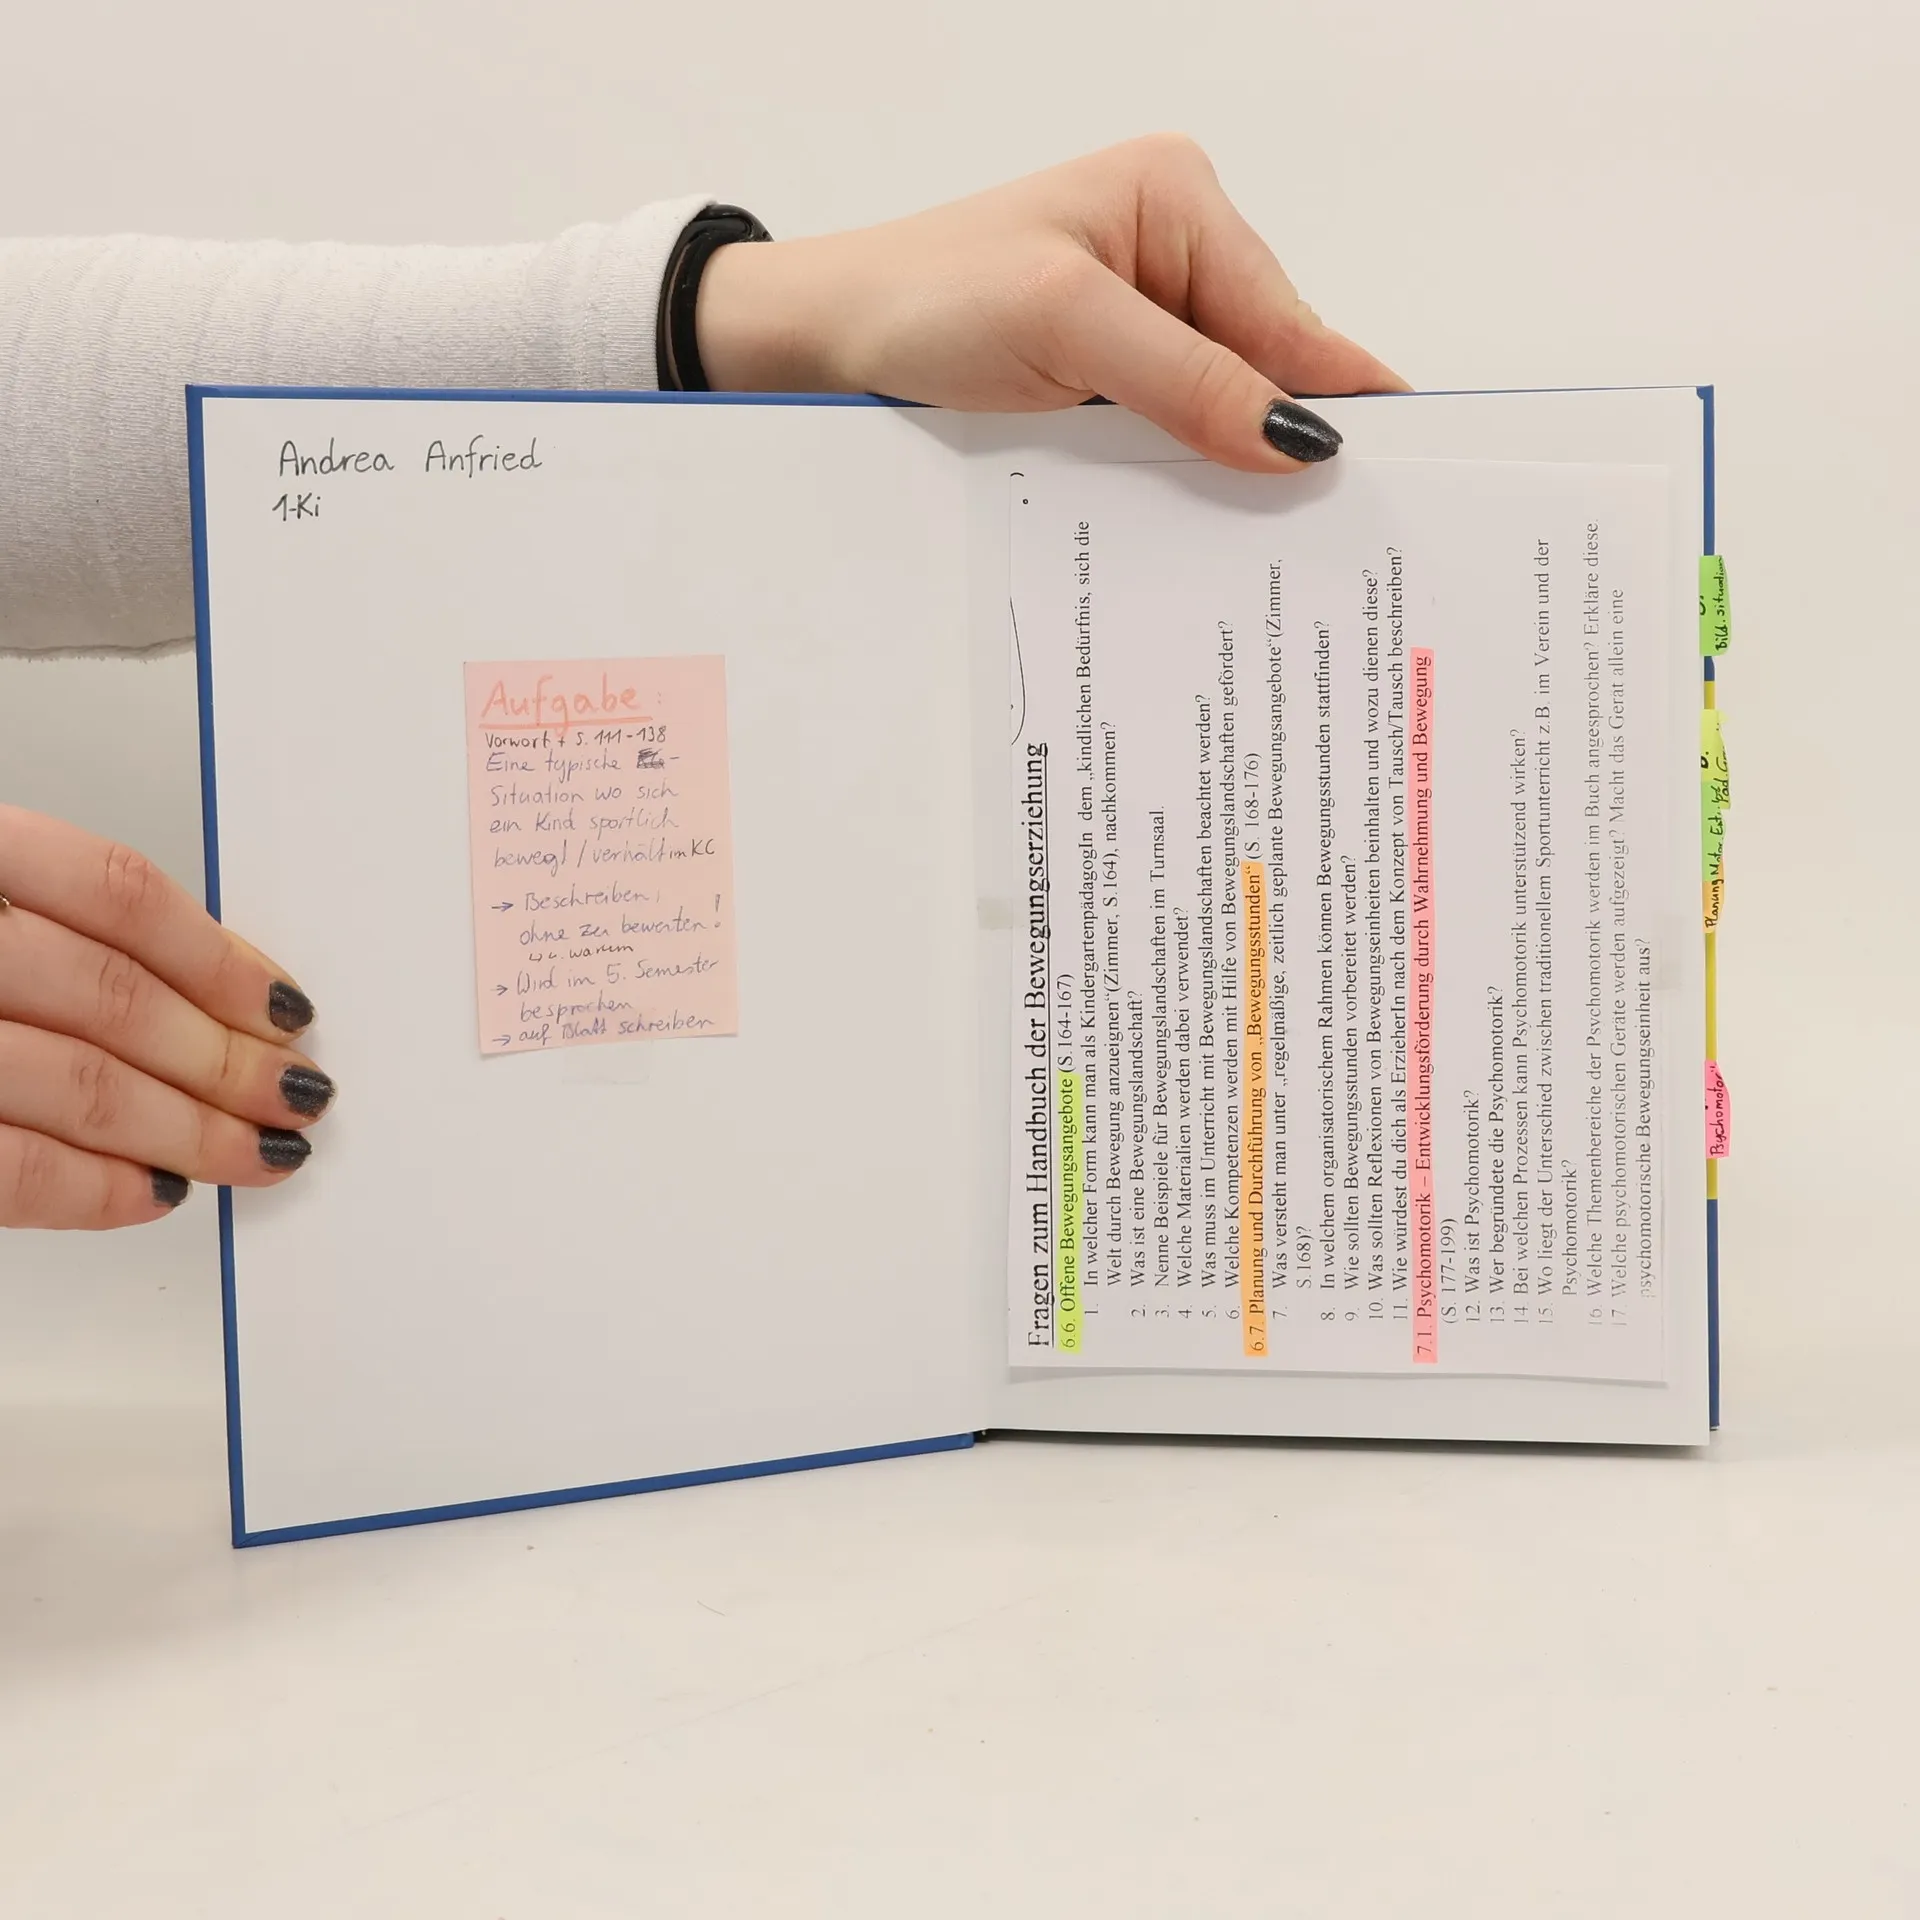 Andrea Anfried
1-Ki
Aufgabe:
Vorwort + S. 111-138
Eine typische
Situation wo sich
ein Kind sportlich
bewegt / verhält im KG
→ Beschreiben,
ohne zu bewerten!
u. warum
→ Wird im 5. Semester
besprochen
→ auf Blatt schreiben
Fragen zum Handbuch der Bewegungserziehung
6.6. Offene Bewegungsangebote (S.164-167)
1. In welcher Form kann man als KindergartenpädagogIn dem „kindlichen Bedürfnis, sich die
Welt durch Bewegung anzueignen“(Zimmer, S.164), nachkommen?
2. Was ist eine Bewegungslandschaft?
3. Nenne Beispiele für Bewegungslandschaften im Turnsaal.
4. Welche Materialien werden dabei verwendet?
5. Was muss im Unterricht mit Bewegungslandschaften beachtet werden?
6. Welche Kompetenzen werden mit Hilfe von Bewegungslandschaften gefördert?
6.7. Planung und Durchführung von „Bewegungsstunden“ (S. 168-176)
7. Was versteht man unter „regelmäßige, zeitlich geplante Bewegungsangebote“(Zimmer,
S.168)?
8. In welchem organisatorischem Rahmen können Bewegungsstunden stattfinden?
9. Wie sollten Bewegungsstunden vorbereitet werden?
10. Was sollten Reflexionen von Bewegungseinheiten beinhalten und wozu dienen diese?
11. Wie würdest du dich als ErzieherIn nach dem Konzept von Tausch/Tausch beschreiben?
7.1. Psychomotorik – Entwicklungsförderung durch Wahrnehmung und Bewegung
(S. 177-199)
12. Was ist Psychomotorik?
13. Wer begründete die Psychomotorik?
14. Bei welchen Prozessen kann Psychomotorik unterstützend wirken?
15. Wo liegt der Unterschied zwischen traditionellem Sportunterricht z.B. im Verein und der
Psychomotorik?
16. Welche Themenbereiche der Psychomotorik werden im Buch angesprochen? Erkläre diese.
17. Welche psychomotorischen Geräte werden aufgezeigt? Macht das Gerät allein eine
psychomotorische Bewegungseinheit aus?
Bild. situation
Planung
Psychomotor